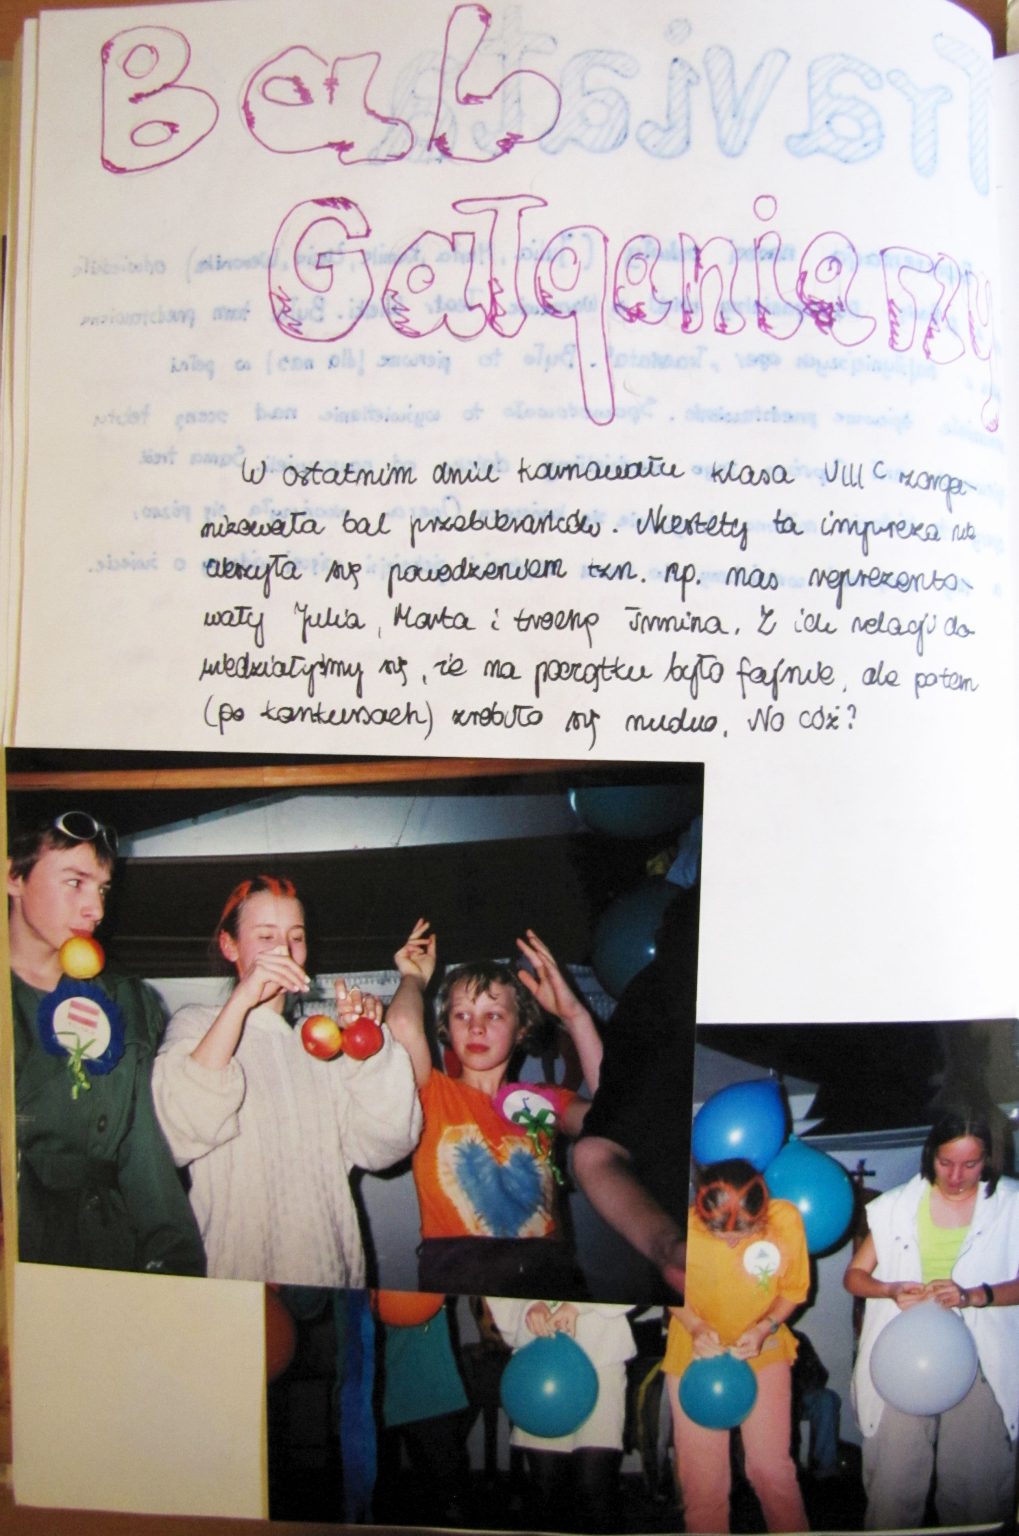 Bal
Gałganiarzy
W ostatnim dniu karnawału klasa VIII C zorga-
nizowała bal przebierańców. Niestety ta impreza nie
cieszyła się powodzeniem tzn. np. nas reprezento-
wały Julia, Marta i trochę Irmina. Z ich relacji do-
wiedziałyśmy się, że na początku było fajnie, ale potem
(po konkursach) zrobiło się nudno. No cóż?